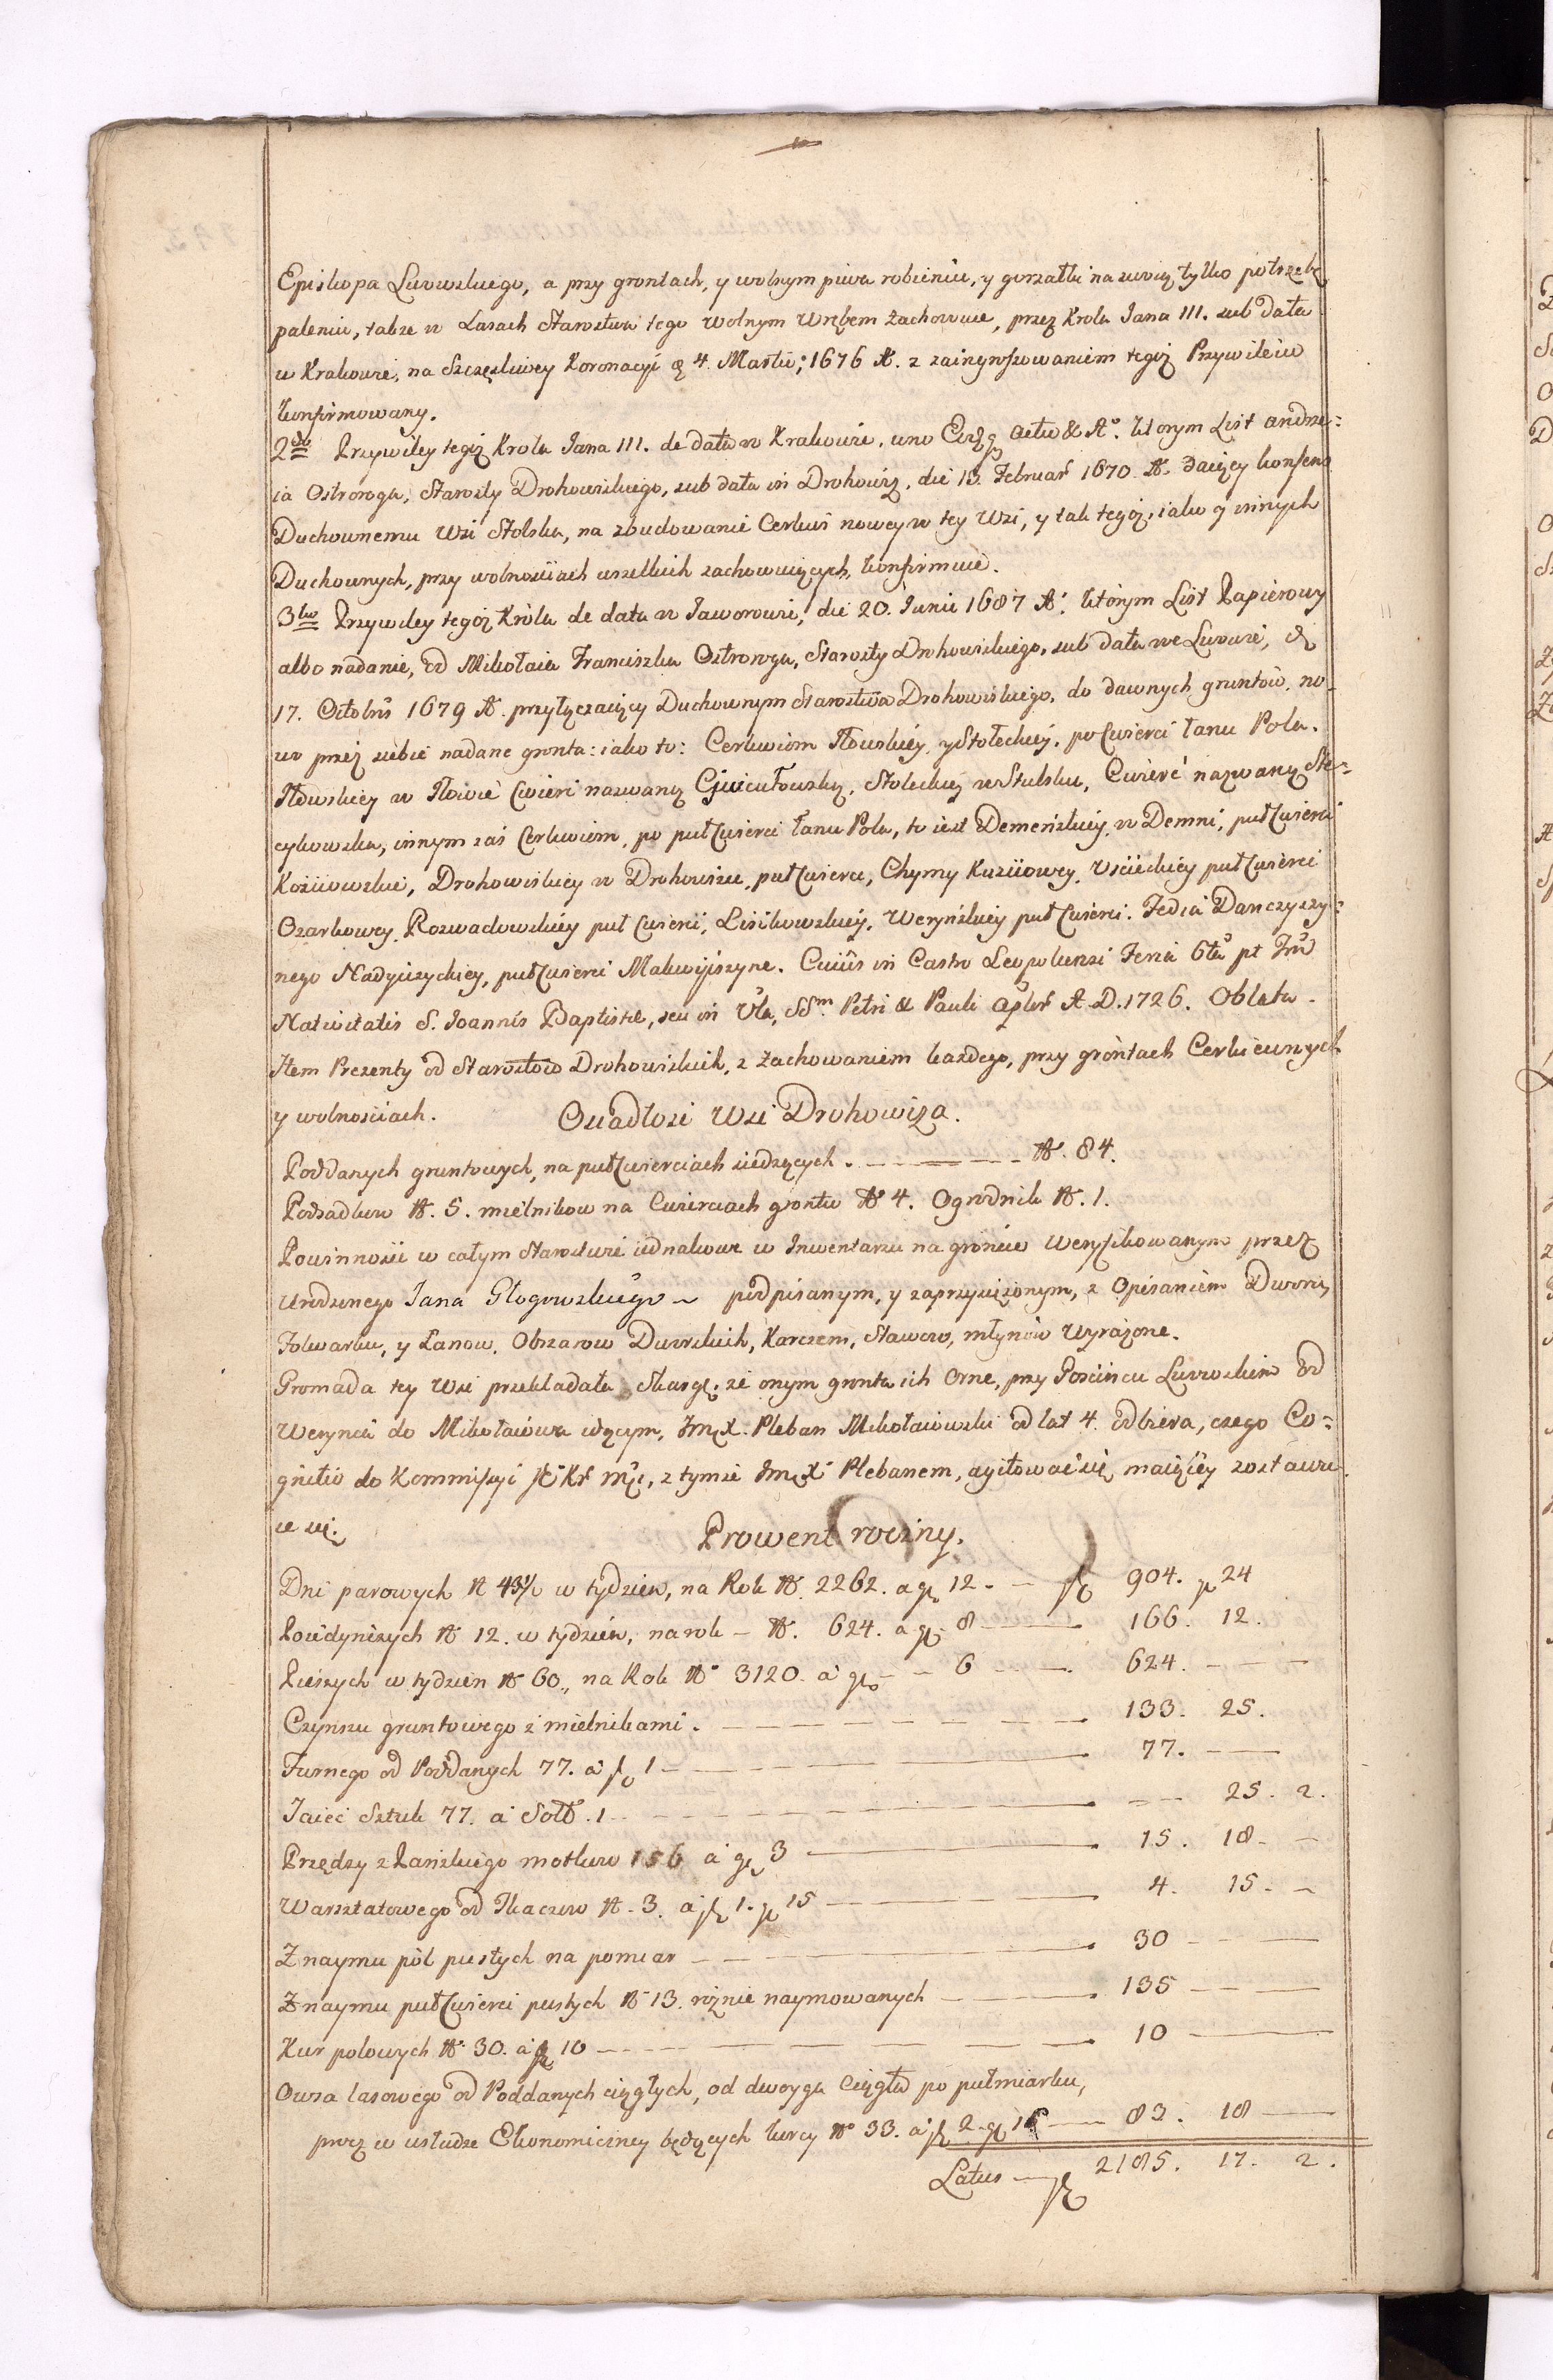 Episkopa Lwowskiego, a przy grontach, y wolnym piwa robieniu, y gorzałki na swoią tylko potrzebę
paleniu, także w Lasach Starostwa tego wolnym wrębem zachowuie, przez Krola Jana III. sub data
w Krakowie, na Szczęśliwey Koronacyi 4. Martii; 1676 A. z zaingrossowaniem tegoż Przywileiu
konfirmowany.
2do Przywiley tegoż Krola Jana III. de data w Krakowie, actu & Ao. ktorym List Andrze=
ia Ostroroga, Starosty Drohowizkiego, sub data in Drohowiz, die 13. Februar 1670. A. daiący konsens
Duchownemu Wsi Stolska, na zbudowanie Cerkwi nowey w tey Wsi, y tak tegoż, iako y innych
Duchownych, przy wolnościach wszelkich zachowuiących, konfirmuie.
3tio Przywiley tegoż Króla de data w Jaworowie, die 20. Iunii 1687 A. którym List Papierowy
albo nadanie, od Mikołaia Franciszka Ostroroga, Starosty Drohowizkiego, sub data we Lwowie, d
17. Octobris 1679 A. przyłączaiący Duchownym Starostwa Drohowizkiego, do dawnych gruntów, no-
wo przez siebie nadane gronta: iako to: Cerkwiom Iłowskiéy, y Stołeckiéy, po cwierci łanu Pola.
Iłowskiey w Iłowie cwierć nazwaną, Stoleckiey w Stulsku, Cwierć nazwaną Ste=
cykowska, innym zaś Cerkwiom, po puł cwierci łanu Pola, to iest Demeńskiey, w Demni, puł cwierci
Koziiowskiej, Drohowiskiey w Drohowizu, puł cwierci, Chymy Kuziiowey, Uściéckiéy puł cwierci
Ozarkowey, Rozwadowskiéy puł cwierci, Lisikowskiéy, Weryńskiey puł cwierci. Fedia Danczyszy=
nego Nadyczyckiey, puł cwierci Malwijszyne. Cuius in Castro Leopoliensi Feria 6ta pt Fest
Nativitatis S. Joannis Baptistæ, seu in SSm. Petri & Pauli Aplor A. D. 1726. Oblata.
Item Prezenty od Starostow Drohowizkich, z zachowaniem każdego, przy grontach Cerkiewnych
y wolnościach. Osiadłość Wsi Drohowiża.
Poddanych gruntowych, na puł cwierciach siedzących. № 84.
Podsadkow № 5. mielnikow na Cwierciach grontu № 4. Ogrodnik № 1.
Powinności w całym Starostwie iednakowe w Inwentarzu na gróncie weryfikowanym przez
Urodzonego Jana Głogowskiego podpisanym, y zaprzysiężonym, z Opisaniem Dworu,
Folwarku, y Łanow, Obszarow Dworskich, Karczem, Stawow, młynów wyrażone.
Gromada tey Wsi przekładała skargę, że onym gronta ich Orne, przy Gościńcu Lwowskim od
Werynia do Mikołaiowa idącym, Jmć X. Pleban Mikołaiowski od lat 4. odbiera, czego Co=
gnitio do Kommissyi, z tymże Jmć X Plebanem, agitować się maiącéy zostawu-
ie się.
Prowent roczny.
Dni parowych № 43½ w tydzien, na Rok № 2262. a gr 12. fl 904. gr 24
Poiedynszych № 12. w tydzién, na rok № 624. a gr 8 166. 12.
Pieszych w tydzien № 60, na Rok № 3120. a gr 6 624.
Czynszu gruntowego z mielnikami. 133. 25.
Furnego od Poddanych 77. a fl 1 77.
Jaiec Sztuk 77. a Sold. 1 25. 2.
Przędzy z Pańskiego motkow 156 a gr 3 15. 18.
Warsztatowego od Tkaczow № 3. a fl 1. gr 15 4. 15.
Z naymu pól pustych na pomiar 30
Z naymu puł cwierci pustych № 13. rożnie naymowanych 135
Kur polowych № 30. a gr 10 10
Owsa lasowego od Poddanych ciągłych, od dwoyga Ciągła po pułmiarku,
procz w usłudze Ekonomiczney będących korcy № 33. a fl 2. gr 16 83. 18
Latus fl 2185. 17. 2.